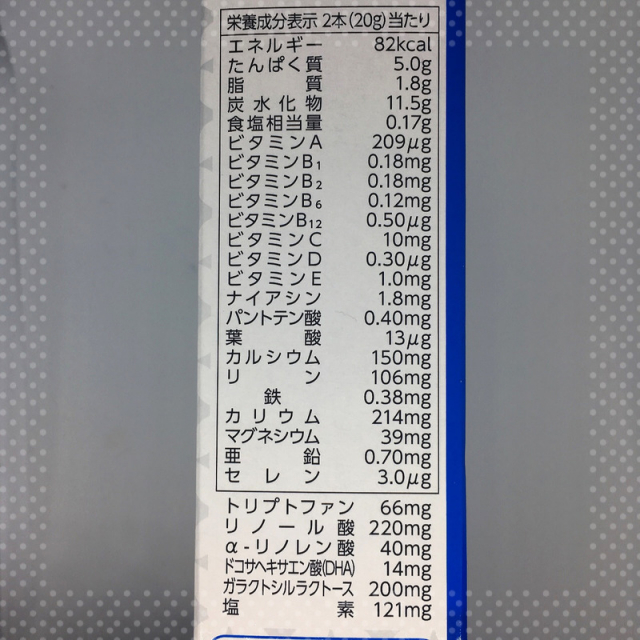 栄養成分表示 2本(20g)当たり
エネルギー 82kcal
たんぱく質 5.0g
脂質 1.8g
炭水化物 11.5g
食塩相当量 0.17g
ビタミンA 209μg
ビタミンB₁ 0.18mg
ビタミンB₂ 0.18mg
ビタミンB₆ 0.12mg
ビタミンB₁₂ 0.50μg
ビタミンC 10mg
ビタミンD 0.30μg
ビタミンE 1.0mg
ナイアシン 1.8mg
パントテン酸 0.40mg
葉酸 13μg
カルシウム 150mg
リン 106mg
鉄 0.38mg
カリウム 214mg
マグネシウム 39mg
亜鉛 0.70mg
セレン 3.0μg
トリプトファン 66mg
リノール酸 220mg
α-リノレン酸 40mg
ドコサヘキサエン酸(DHA) 14mg
ガラクトシルラクトース 200mg
塩素 121mg